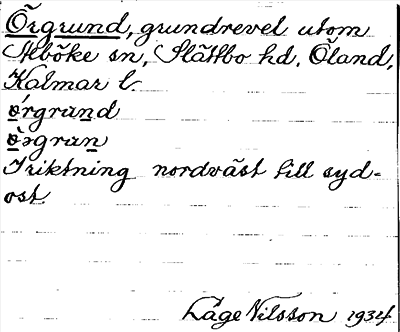 Örgrund, grundrevel utom
Alböke sn, Slättbo hd, Öland,
Kalmar l.
ørgrund
øgrun
I riktning nordväst till syd-
ost
Låge Nilsson 1934